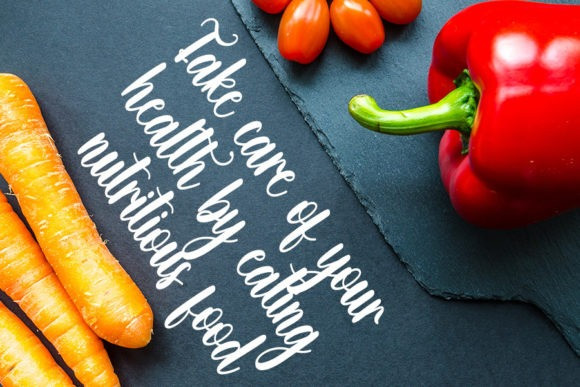 Take care of your
health by eating
nutritious food